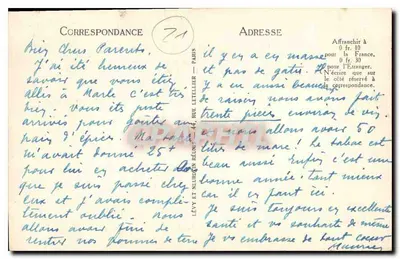 CORRESPONDANCE
71
Bien Chers Parents.
J'ai été heureux de
savoir que vous étiez
allés à Marle c'est très
bien. vous êtes juste
arrivés pour goûter au
pain d'épices. Ma
m'avait donné 25f
pour lui en acheter
que je suis passé chez
eux et j'avais complè-
tement oublié. nous
allons avoir fini de
rentrer nos pommes de terre
LÉVY ET NEURDEIN RÉUNIS - 44, RUE LETELLIER - PARIS
ADRESSE
Affranchir à
0 fr. 10
pour la France,
0 fr. 30
pour l'Étranger.
N'écrire que sur
le côté réservé à
la correspondance.
il y en a en masse
et pas de gatés. Il
y a en aussi beaucoup
de raisins, nous avons fait
trente pièces environ de vin.
nous allons avoir 50
litres de marc! Le tabac est
beau aussi enfin c'est une
bonne année. tant mieux
car il en faut ici.
Je suis toujours en excellente
santé et vous souhaite de même
Je vous embrasse de tout coeur
Maurice